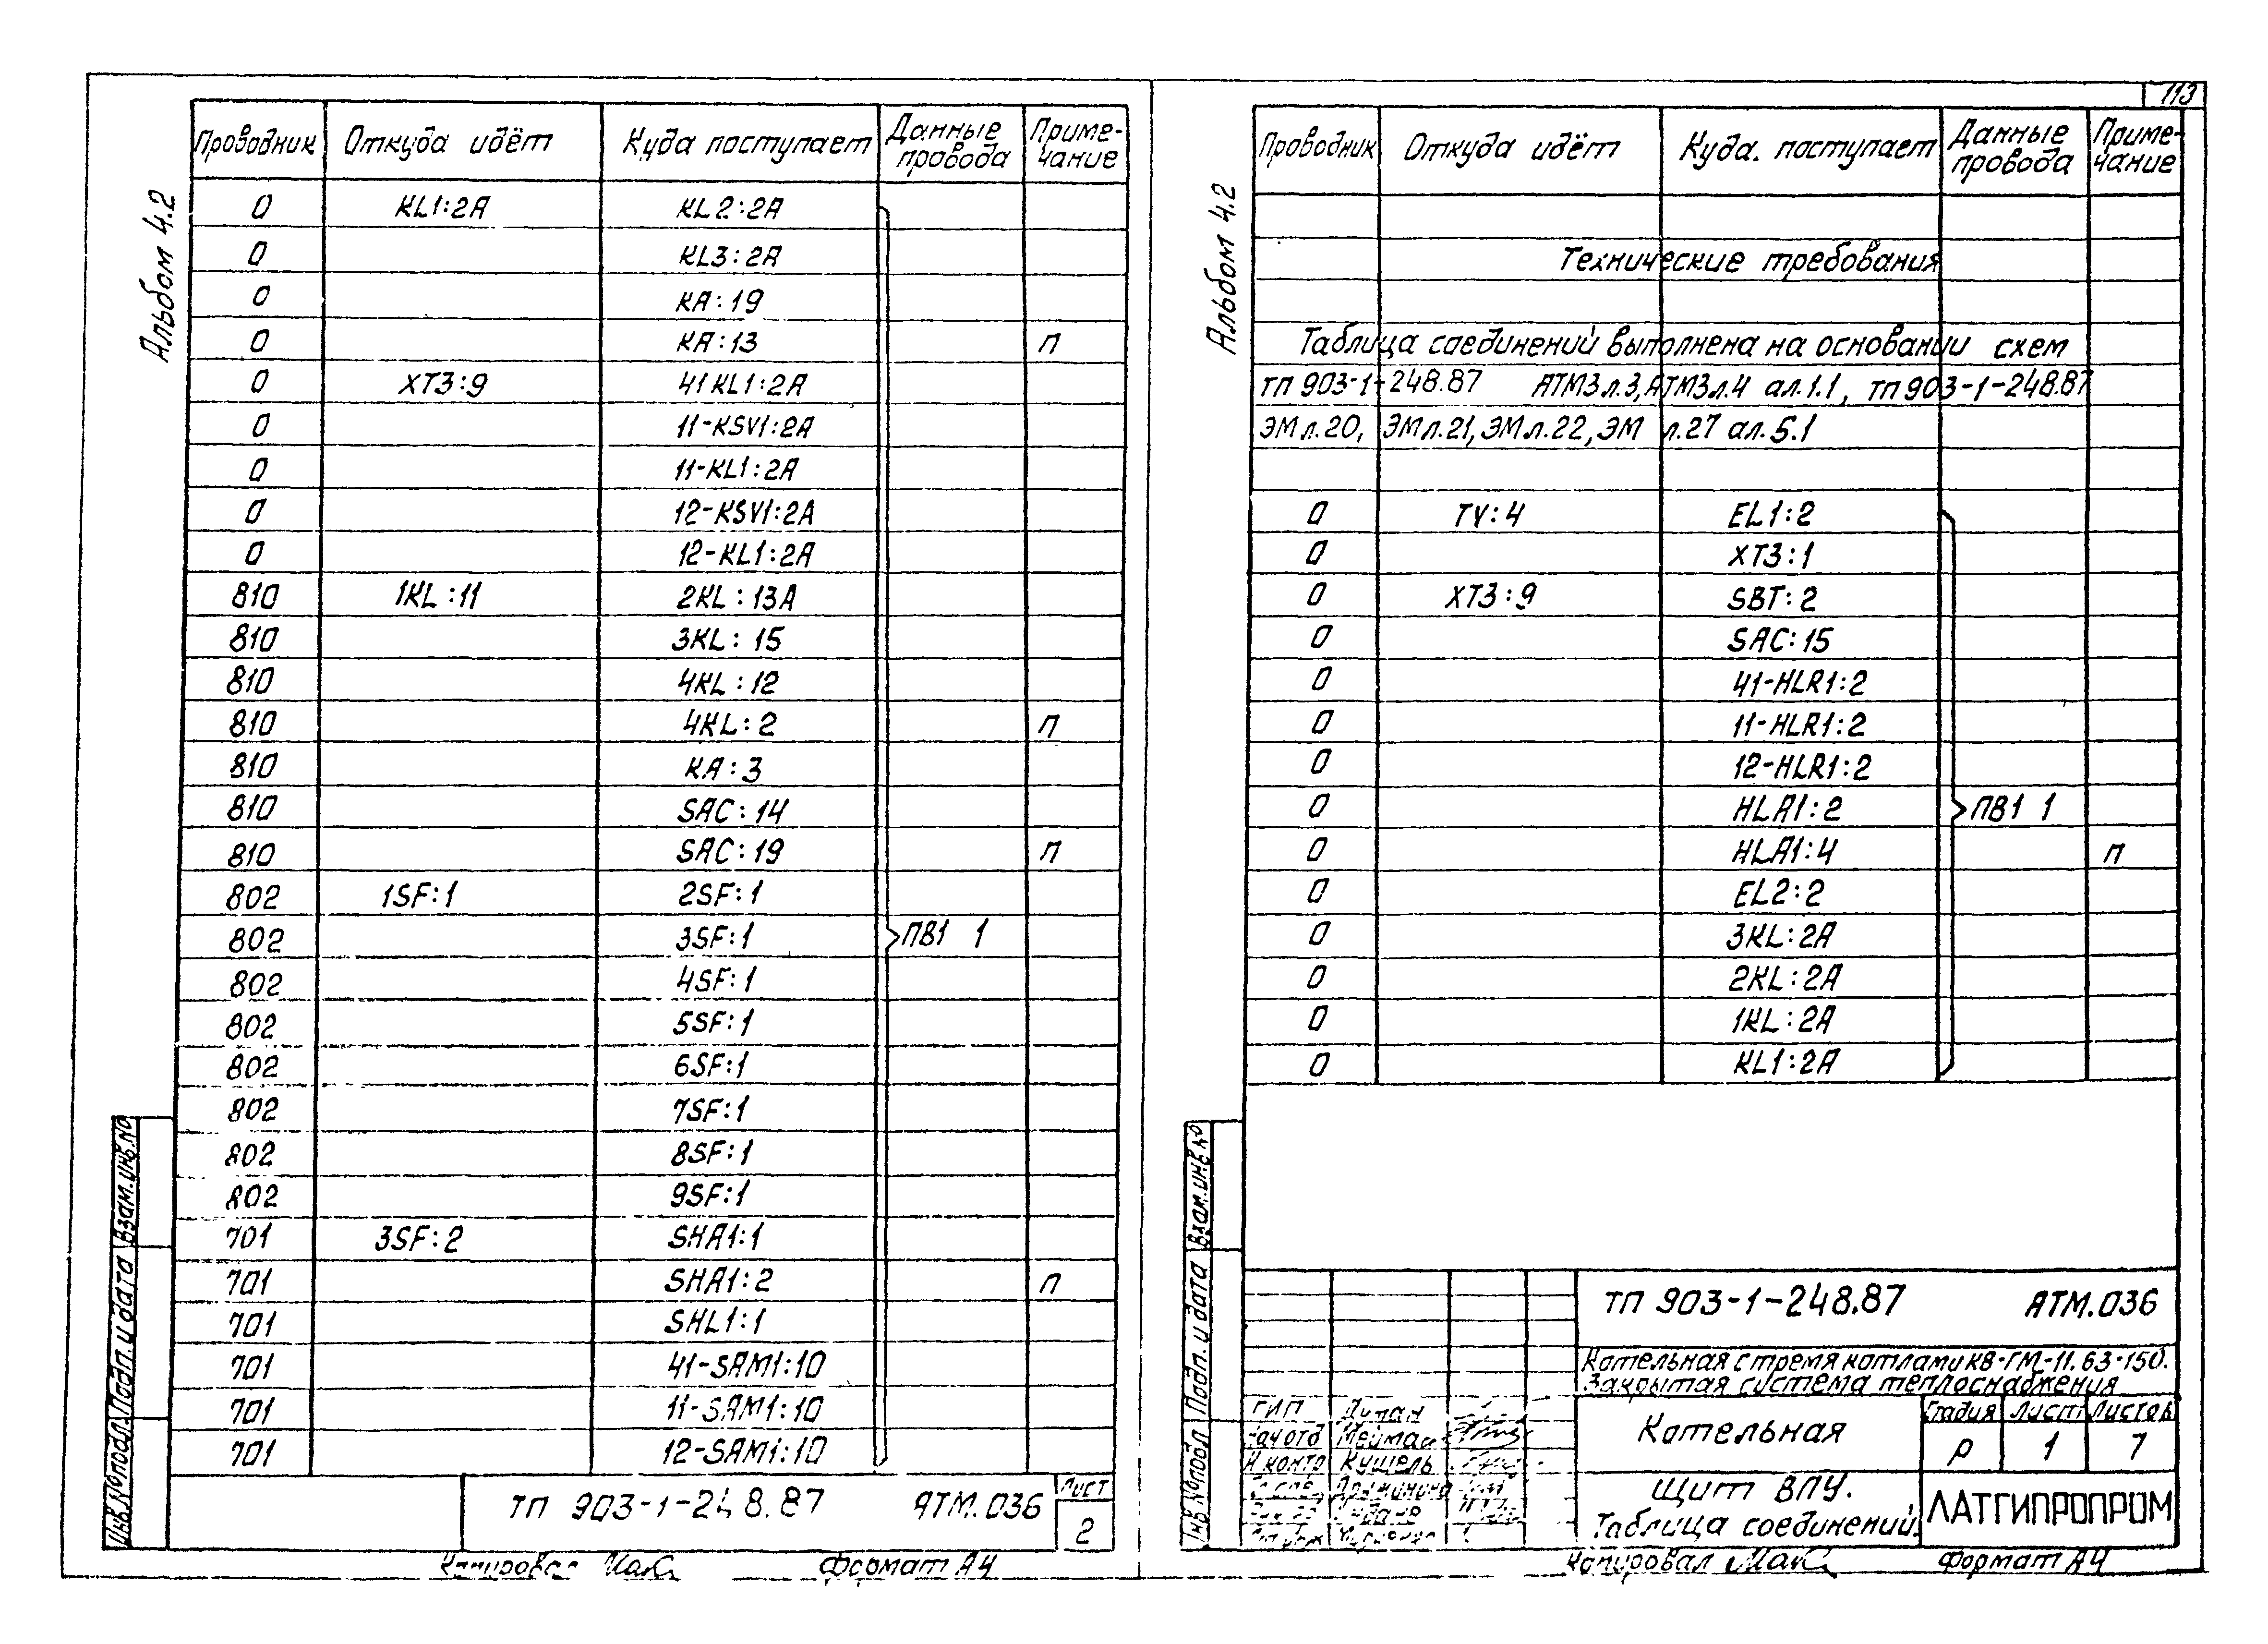 Альбом 4.2
Проводник Откуда идёт Куда поступает Данные провода Примечание
0 KL1:2A KL2:2A
0 KL3:2A
0 KA:19
0 KA:13 п
0 XT3:9 41KL1:2A
0 11-KSV1:2A
0 11-KL1:2A
0 12-KSV1:2A
0 12-KL1:2A
810 1KL:11 2KL:13A
810 3KL:15
810 4KL:12
810 4KL:2 п
810 KA:3
810 SAC:14
810 SAC:19 п
802 1SF:1 2SF:1
802 3SF:1 ПВ1 1
802 4SF:1
802 5SF:1
802 6SF:1
802 7SF:1
802 8SF:1
802 9SF:1
701 3SF:2 SHA1:1
701 SHA1:2 п
701 SHL1:1
701 41-SAM1:10
701 11-SAM1:10
701 12-SAM1:10
Инв.№подл. Подп. и дата Взам.инв.№
ТП 903-1-248.87 АТМ.036 Лист
2
Копировал Формат А4
113
Альбом 4.2
Проводник Откуда идёт Куда. поступает Данные провода Примечание
Технические требования
Таблица соединений выполнена на основании схем
ТП 903-1-248.87 АТМ3 л.3, АТМ3 л.4 ал.1.1, ТП 903-1-248.87
ЭМ л.20, ЭМ л.21, ЭМ л.22, ЭМ л.27 ал.5.1
0 TV:4 EL1:2
0 XT3:1
0 XT3:9 SBT:2
0 SAC:15
0 41-HLR1:2
0 11-HLR1:2
0 12-HLR1:2
0 HLA1:2 ПВ1 1
0 HLA1:4 п
0 EL2:2
0 3KL:2A
0 2KL:2A
0 1KL:2A
0 KL1:2A
Инв.№подл Подп. и дата Взам.инв.№
ТП 903-1-248.87 АТМ.036
Котельная с тремя котлами КВ-ГМ-11.63-150.
Закрытая система теплоснабжения
ГИП
Нач отд
Н.контр Кушель
Котельная
Стадия Лист Листов
Р 1 7
Щит ВПУ.
Таблица соединений.
ЛАТГИПРОПРОМ
Копировал Формат А4